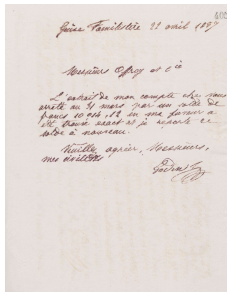 Guise Familistère 22 avril 1887
Messieurs Offroy et Cie
L'extrait de mon compte chez vous
arrêté au 31 mars par un solde de
francs en ma faveur a
été trouvé exact et je reporte ce
solde à nouveau.
Veuillez agréer, Messieurs,
mes civilités
Godin